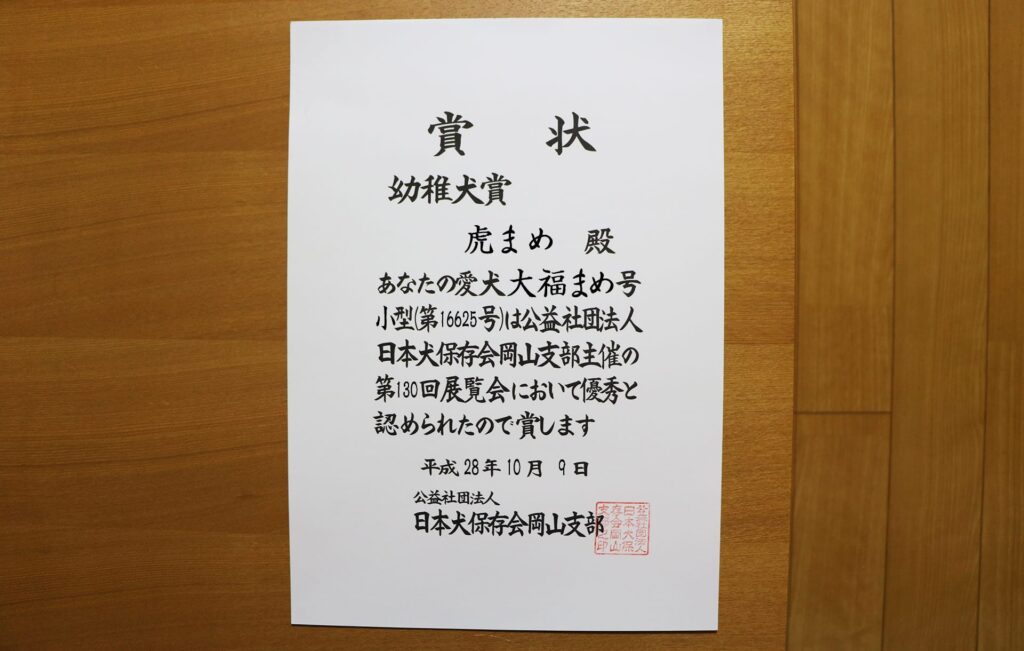 賞 状
幼稚犬賞
虎まめ 殿
あなたの愛犬大福まめ号
小型(第16625号)は公益社団法人
日本犬保存会岡山支部主催の
第130回展覧会において優秀と
認められたので賞します
平成28年10月 9日
公益社団法人
日本犬保存会岡山支部
社団法人
日本犬保
存会岡山